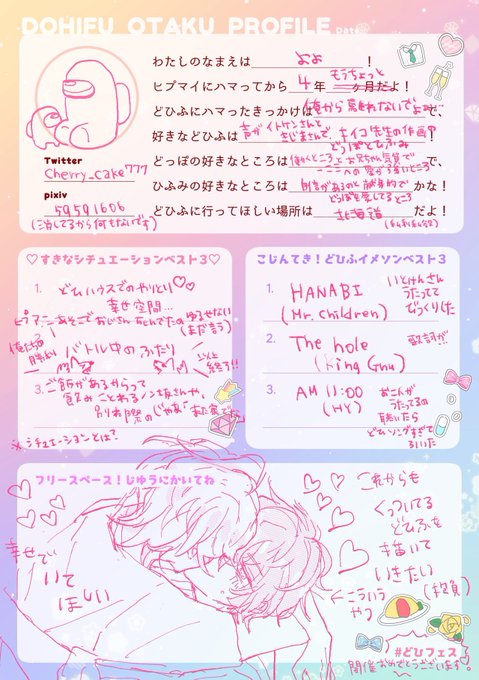 DOHIFU OTAKU PROFILE
Date
わたしのなまえは よよ !
ヒプマイにハマってから 4 年 もうちょっと ヶ月だよ!
どひふにハマったきっかけは 俺から離れないでよォ で、
好きなどひふは 声がイトケンさんと きじまさんで、キイコ先生の作画 !
どっぽの好きなところは 働くところとお兄ちゃん気質で で、
ひふみの好きなところは かな!
どっぽを愛してるところ
どひふに行ってほしい場所は 北海道 だよ!
Twitter
Cherry_cake777
pixiv
59591606
(プロしてるから何もないです)
♡すきなシチュエーションベスト3♡
1. どひハウスでのやりとり♡♡
幸せ空間…
(まだ言う)
2. バトル中のふたり
3. ご飯があるからって
飲みことわるノン坂さんや、
別れ際のじゃあ「また家で」
※シチュエーションとは?
こじんてき!どひふイメソンベスト3
1. HANABI
(Mr. Children)
いとけんさん
うたってて
びっくりした
2. The hole
(King Gnu)
歌詞が…
3. AM 11:00
(HY)
おこんが
うたってるの
聴いたら
どひソングすぎて
引いた
フリースペース!じゆうにかいてね
幸せで
いて
ほしい
これからも
くっついてる
どひふを
描いて
いきたい
(抱負)
←こういう
やつ
#どひフェス
開催おめでとうございます!